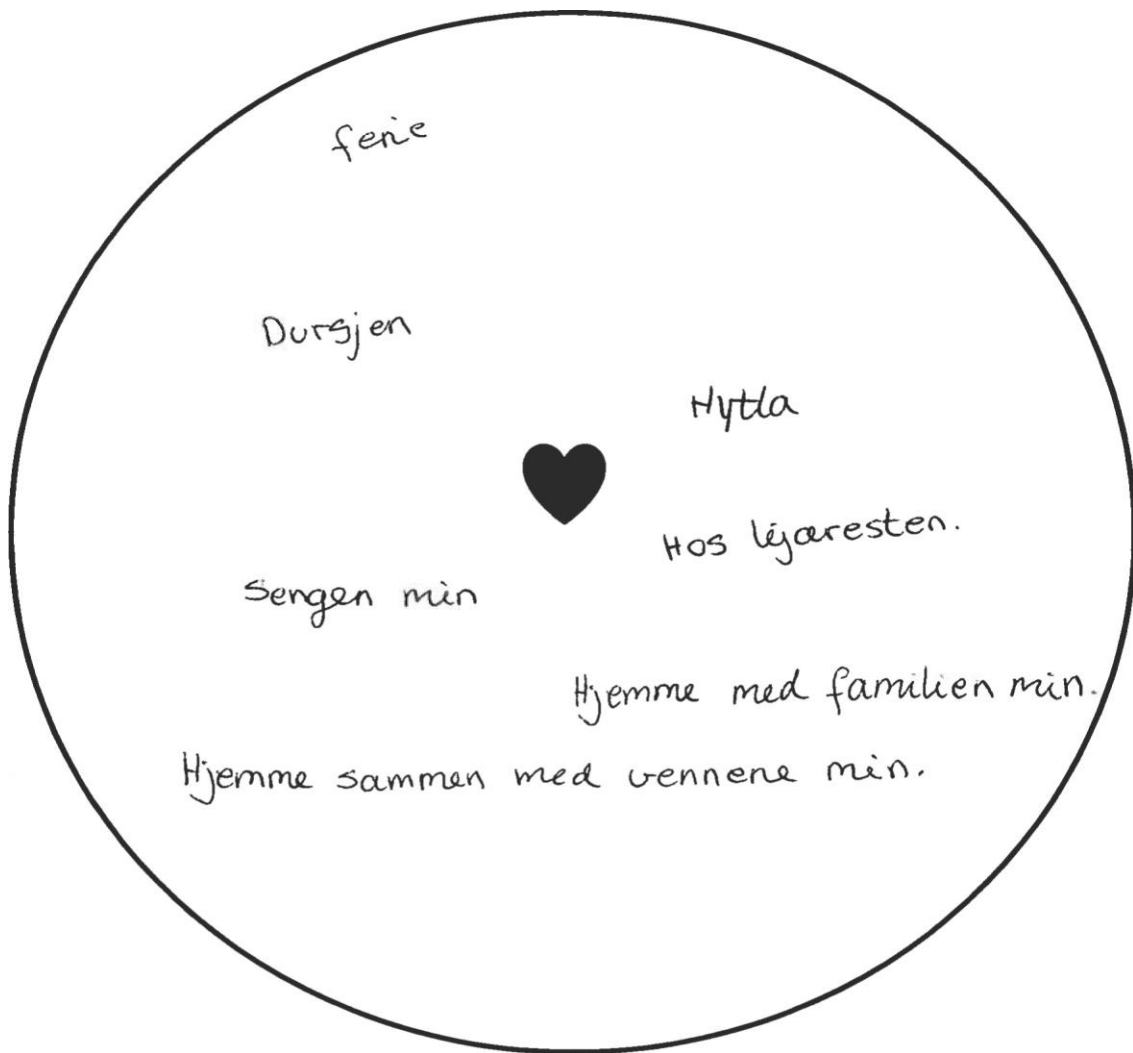 ferie
Dursjen
Hytta
Hos kjæresten.
Sengen min
Hjemme med familien min.
Hjemme sammen med vennene min.